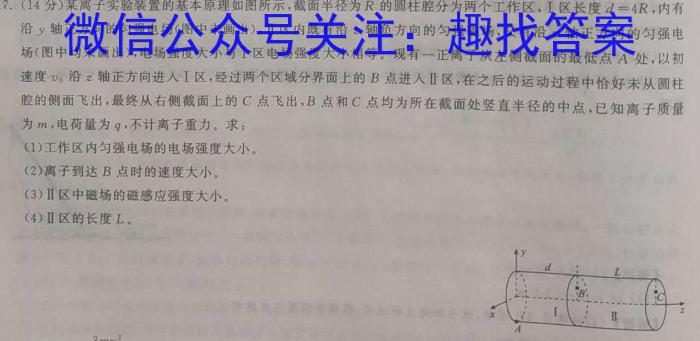 7. (14 分)某离子实验装置的基本原理如图所示,截面半径为 R 的圆柱腔分为两个工作区,Ⅰ区长度 d=4R,内有
沿 y 轴
微信公众号关注：趣找答案
的匀强电
场(图中
现有一正离子从左侧截面的最低点 A 处,以初
速度 v₀ 沿 z 轴正方向进入Ⅰ区,经过两个区域分界面上的 B 点进入Ⅱ区,在之后的运动过程中恰好未从圆柱
腔的侧面飞出,最终从右侧截面上的 C 点飞出,B 点和 C 点均为所在截面处竖直半径的中点,已知离子质量
为 m,电荷量为 q,不计离子重力。求:
(1)工作区内匀强电场的电场强度大小。
(2)离子到达 B 点时的速度大小。
(3)Ⅱ区中磁场的磁感应强度大小。
(4)Ⅱ区的长度 L。
y
d
L
B
C
x
z
Ⅰ
Ⅱ
A